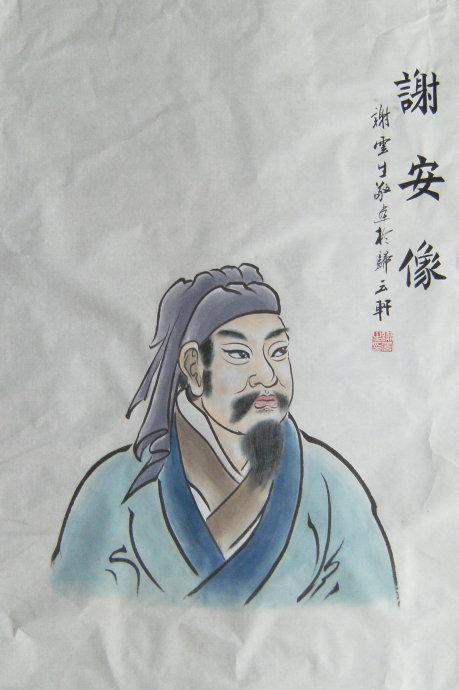 謝安像
謝雲生敬畫於歸云軒